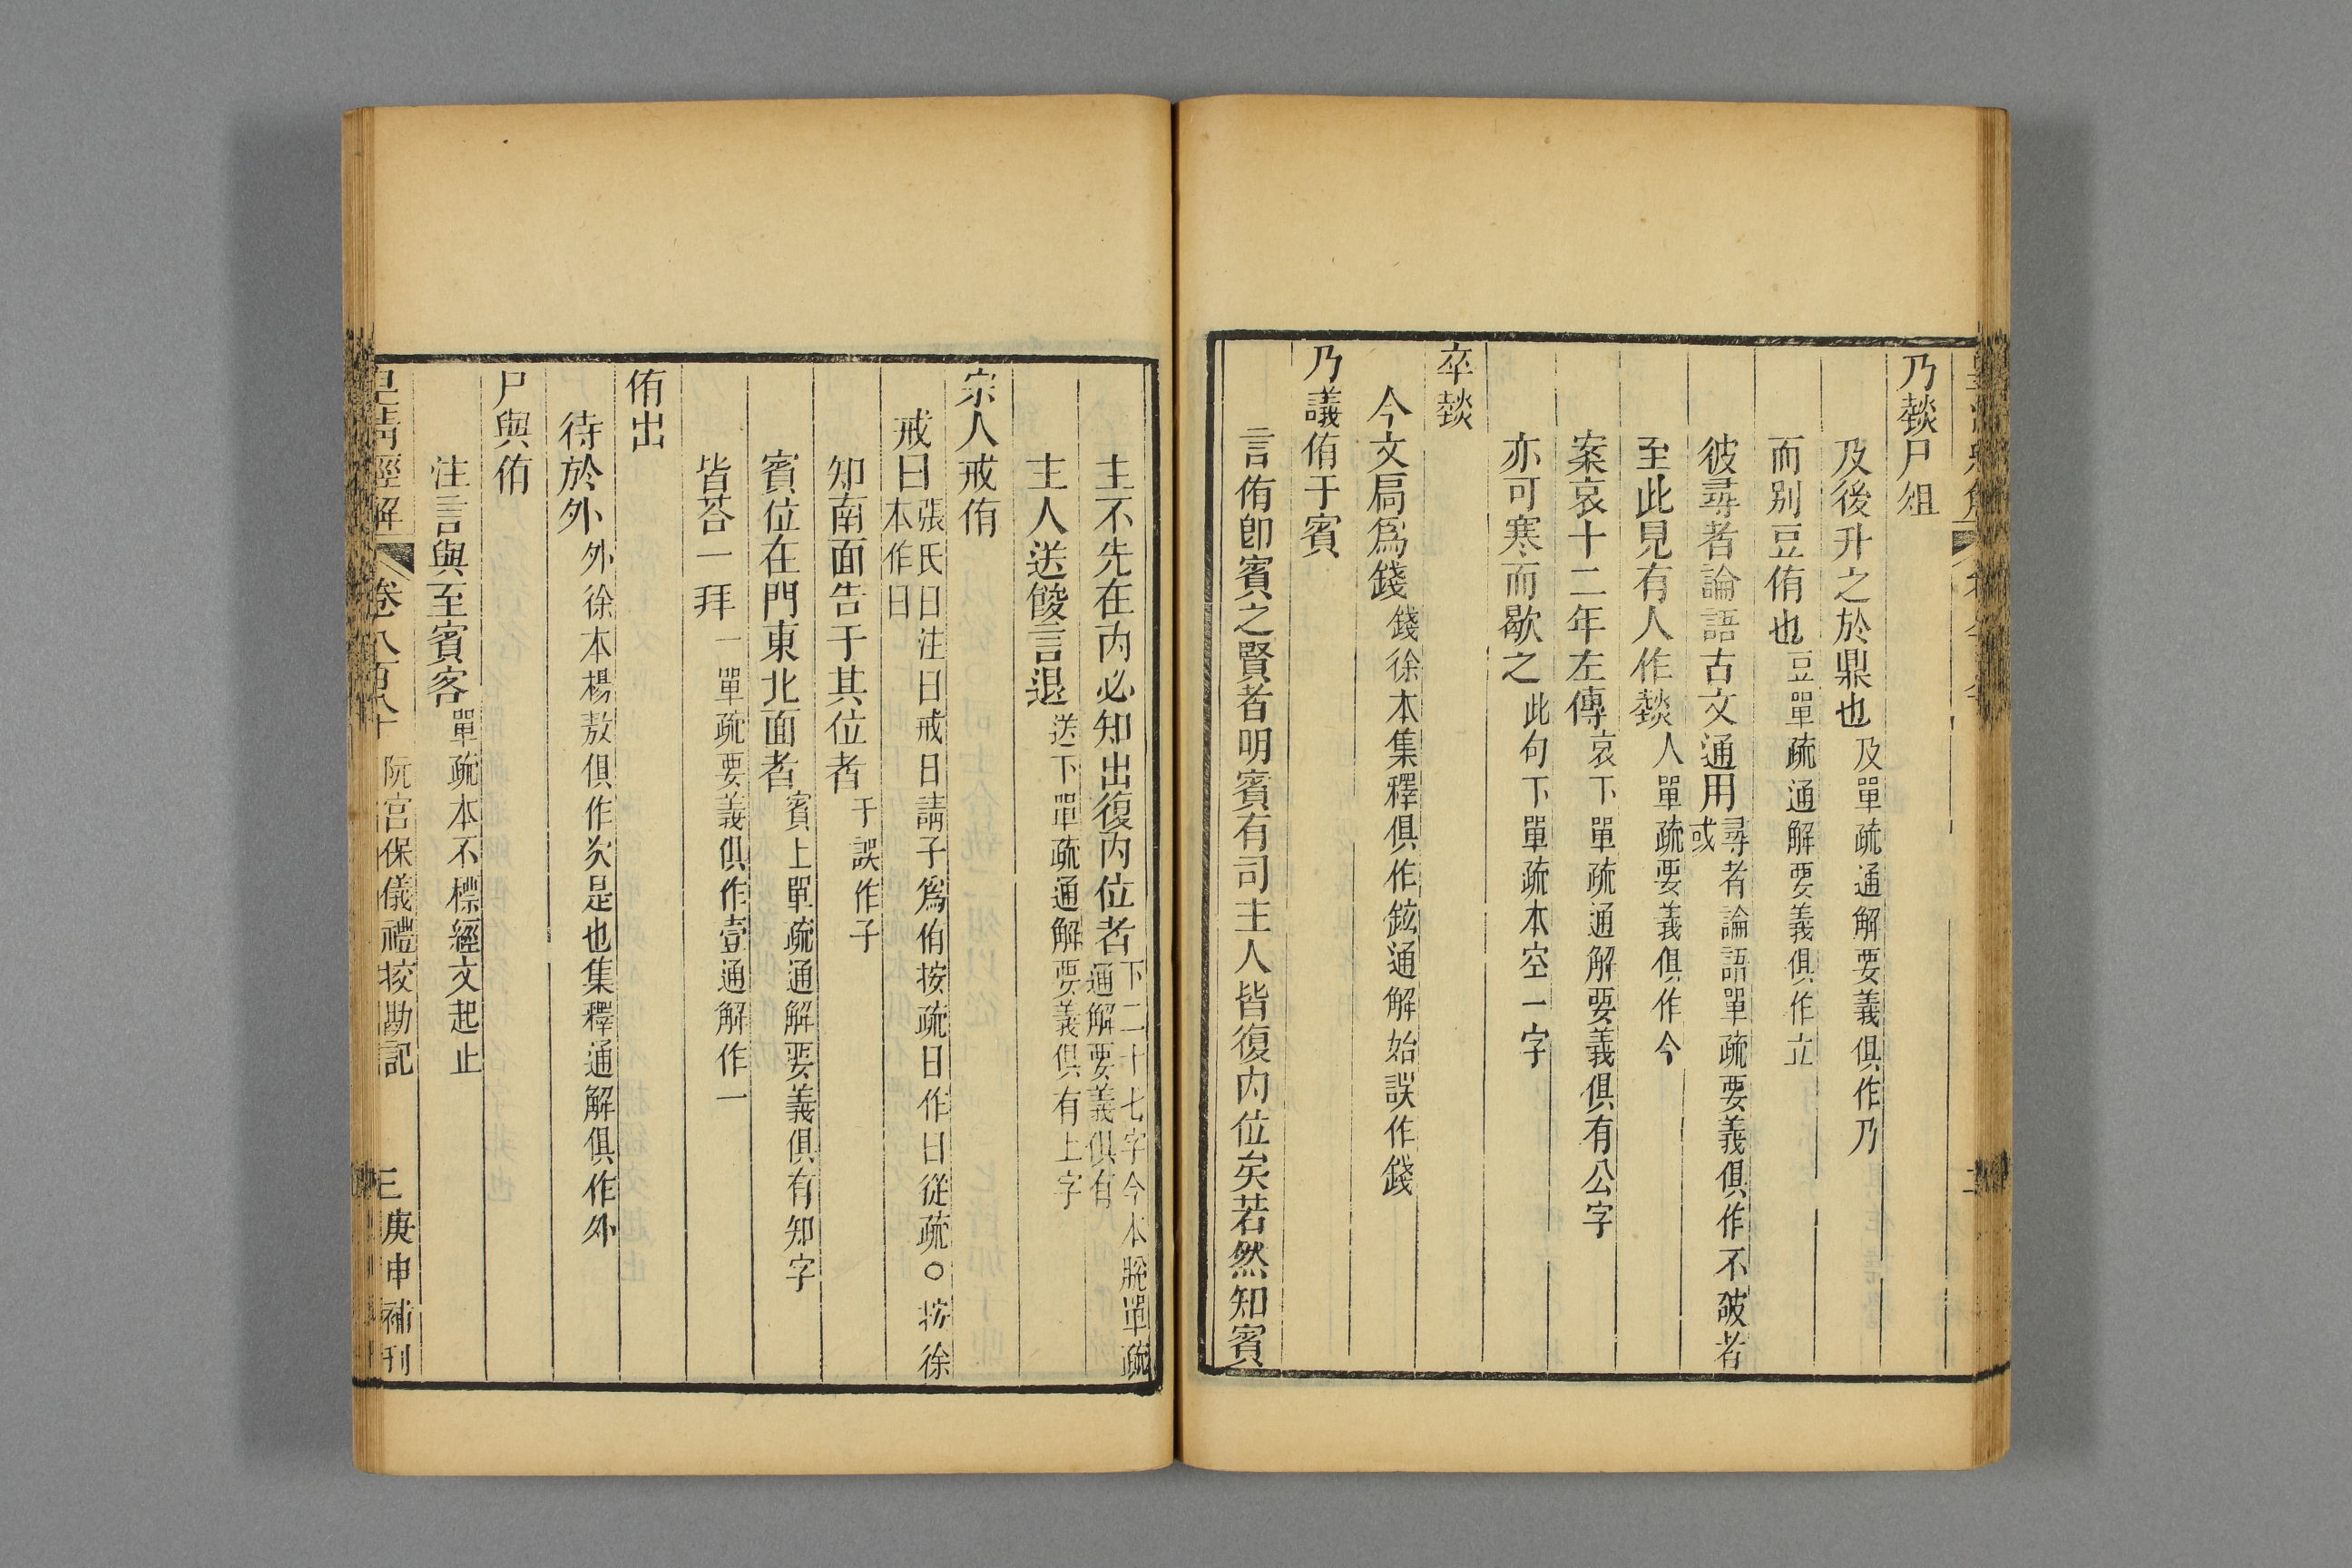 乃燅尸俎
及後升之於鼎也及單疏通解要義俱作乃
而别豆侑也豆單疏通解要義俱作立
彼尋者論語古文通用或尋者論語單疏要義俱作不破者
至此見有人作燅人單疏要義俱作今
案哀十二年左傳哀下單疏通解要義俱有公字
亦可寒而歇之此句下單疏本空一字
卒燅
今文扃爲錢錢徐本集釋俱作鉉通解始誤作錢
乃議侑于賓
言侑卽賓之賢者明賓有司主人皆復內位矣若然知賓
主不先在內必知出復內位者下二十七字今本脫單疏通解要義俱有
主人送餕言退送下單疏通解要義俱有上字
宗人戒侑
戒曰張氏曰注曰戒曰請子爲侑按疏曰作曰從疏○按徐本作曰
知南面告于其位者于誤作子
賓位在門東北面者賓上單疏通解要義俱有知字
皆荅一拜一單疏要義俱作壹通解作一
侑出
待於外外徐本楊敖俱作次是也集釋通解俱作外
尸與侑
注言與至賓客單疏本不標經文起止
皇淸經解 卷八百八十 阮宮保儀禮挍勘記 三 庚申補刊